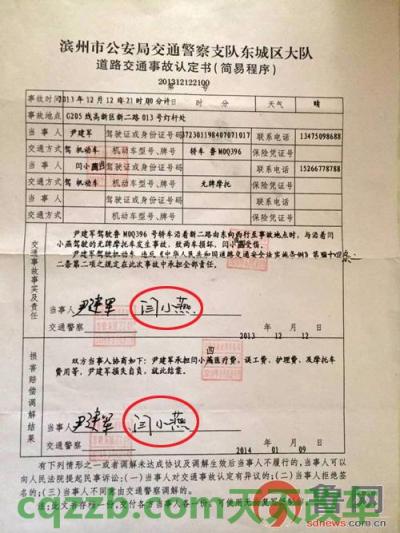 滨州市公安局交通警察支队东城区大队
道路交通事故认定书(简易程序)
201312122100
事故时间 2013年12月12日21时00分许 天气 晴
事故地点 G205线高新区新二路013号灯杆处
当事人 尹建军 驾驶证或身份证号码 联系电话 13475098688
交通方式 驾机动车 机动车型号、牌号 轿车 鲁M0Q396 保险凭证号
当事人 闫小燕 驾驶证或身份证号码 联系电话 15266778788
交通方式 驾机动车 机动车型号、牌号 无牌摩托 保险凭证号
交通事故事实及责任
尹建军驾驶鲁M0Q396号轿车沿着新二路由东向西行至事故地点时,与沿着闫
小燕驾驶的无牌摩托车发生事故,致两车损坏,闫小燕受伤。
尹建军驾驶机动车 违反《中华人民共和国道路交通安全法实施条例》
二条第二项之规定在此次事故中承担全部责任。
当事人 尹建军 闫小燕
交通警察 2013 年 12 月 12
损害赔偿调解结果
双方当事人协商如下:尹建军承担闫小燕医疗费,误工费,护理费,及摩托车
费用等,尹建军损失自负,就此结案。
当事人 尹建军 闫小燕
交通警察 2014 年 01 月 09
有下列情形之一或者调解未达成协议及调解生效后当事人不履行的,当事人可以
向人民法院提起民事诉讼:(一)当事人对交通事故认定有异议的;(二)当事人拒绝签
名的;(三)当事人不同意由交通警察调解的。
cqzzb.cn
sdnews.com.cn